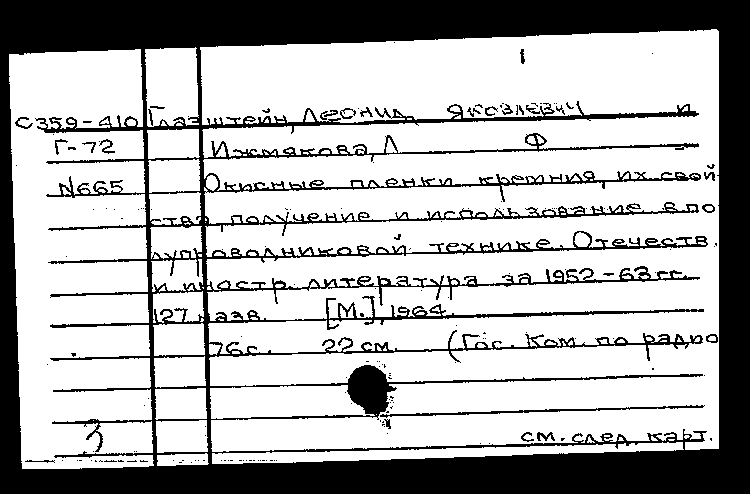 1
С359-410 Глазштейн, Леонид Яковлевич и
Г-72 Ижмякова, Л Ф
N665 Окисные пленки кремния, их свой
ства, получение и использование в по
лупроводниковой технике. Отечеств.
и иностр. литература за 1952-63 гг.
127 назв. [М.], 1964.
76с. 22 см. (Гос. Ком. по радио
3 см. след. карт.